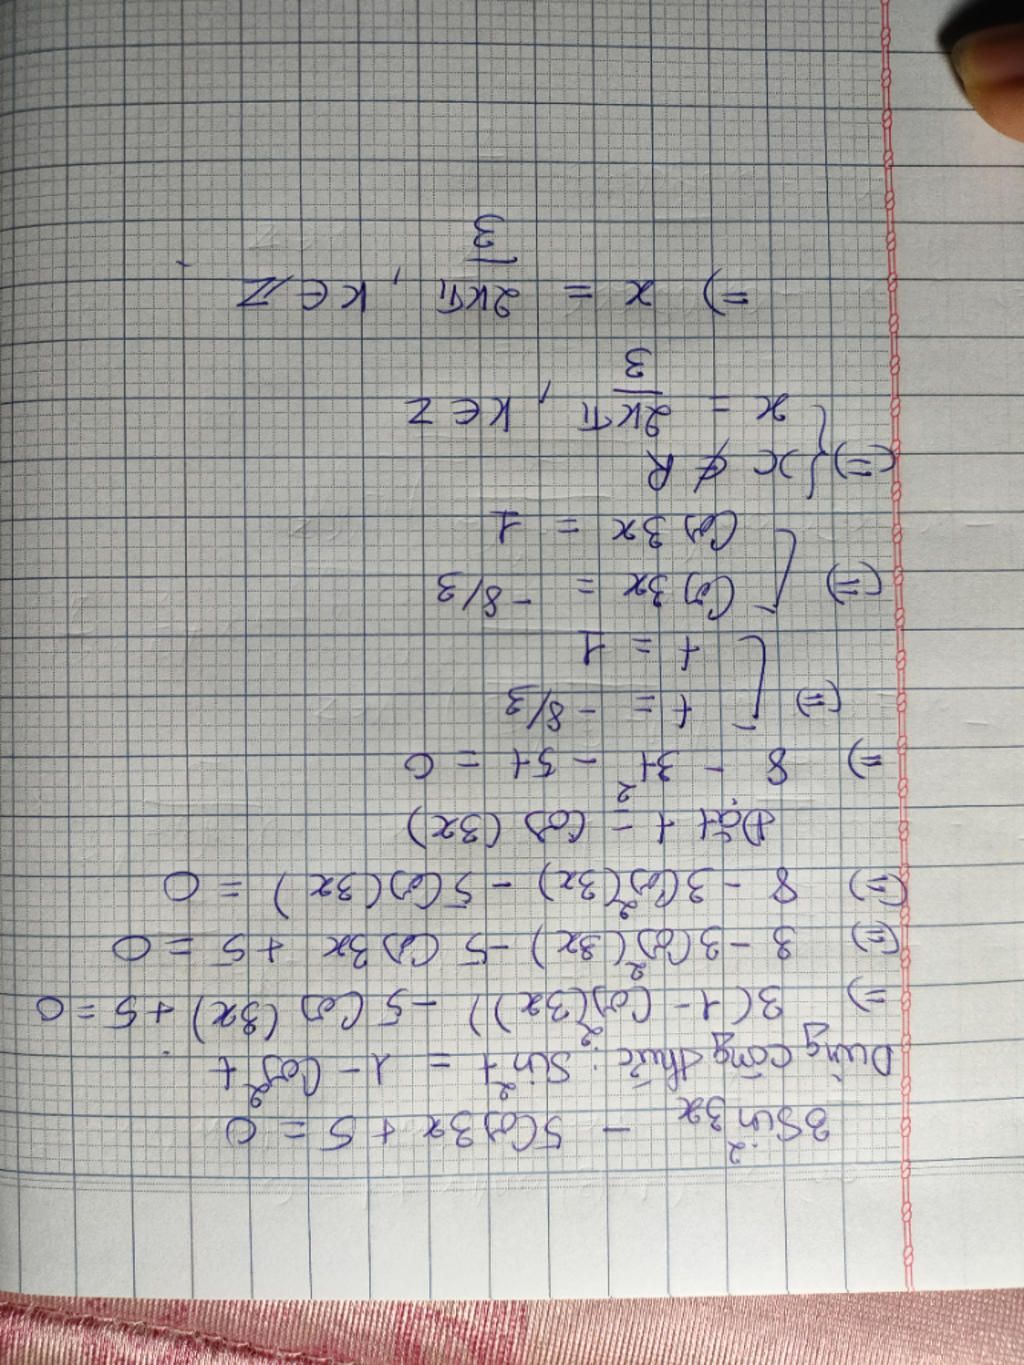 3Sin²3x - 5Cos3x + 5 = 0
Dùng công thức: Sin²t = 1 - Cos²t
=> 3(1 - Cos²(3x)) - 5Cos(3x) + 5 = 0
(=) 3 - 3Cos²(3x) - 5Cos3x + 5 = 0
(=) 8 - 3Cos²(3x) - 5Cos(3x) = 0
Đặt t = Cos(3x)
=> 8 - 3t² - 5t = 0
(=) [ t = -8/3
t = 1
(=) [ Cos3x = -8/3
Cos3x = 1
(=) { x ∉ R
x = 2kπ/3 , k ∈ Z
=) x = 2kπ/3 , k ∈ Z.